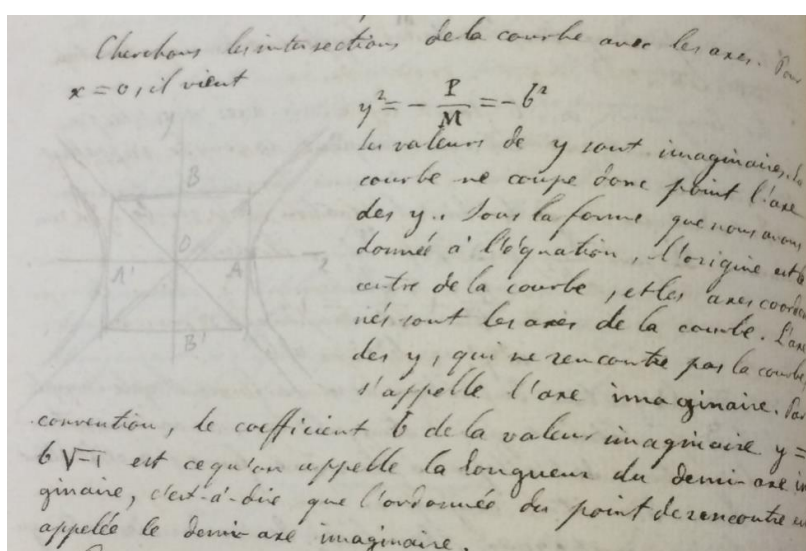 Cherchons les intersections de la courbe avec les axes. Pour
x = 0, il vient
y² = - P/M = - b²
les valeurs de y sont imaginaires. La
courbe ne coupe donc point l'axe
des y. Sous la forme que nous avons
donnée à l'équation, l'origine est le
centre de la courbe, et les axes coordon
nés sont les axes de la courbe. L'axe
des y, qui ne rencontre pas la courbe,
s'appelle l'axe imaginaire. Par
convention, le coefficient b de la valeur imaginaire y =
b √-1 est ce qu'on appelle la longueur du demi-axe im
ginaire, c'est-à-dire que l'ordonnée du point de rencontre
appelée le demi-axe imaginaire.
B
O
A' A x
B'